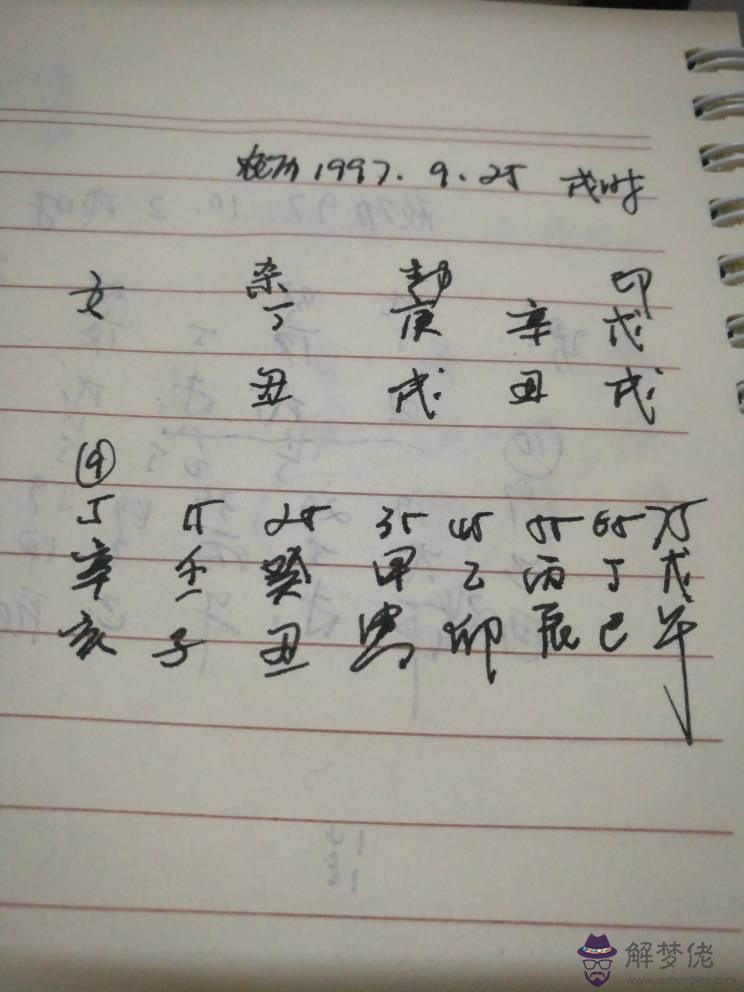 农历1997.9.25 戌时
杀 劫 印
女 丁 庚 辛 戊
丑 戌 丑 戌
④
5 15 25 35 45 55 65 75
辛 壬 癸 甲 乙 丙 丁 戊
亥 子 丑 寅 卯 辰 巳 午
解梦佬
www.jiemenglao.com